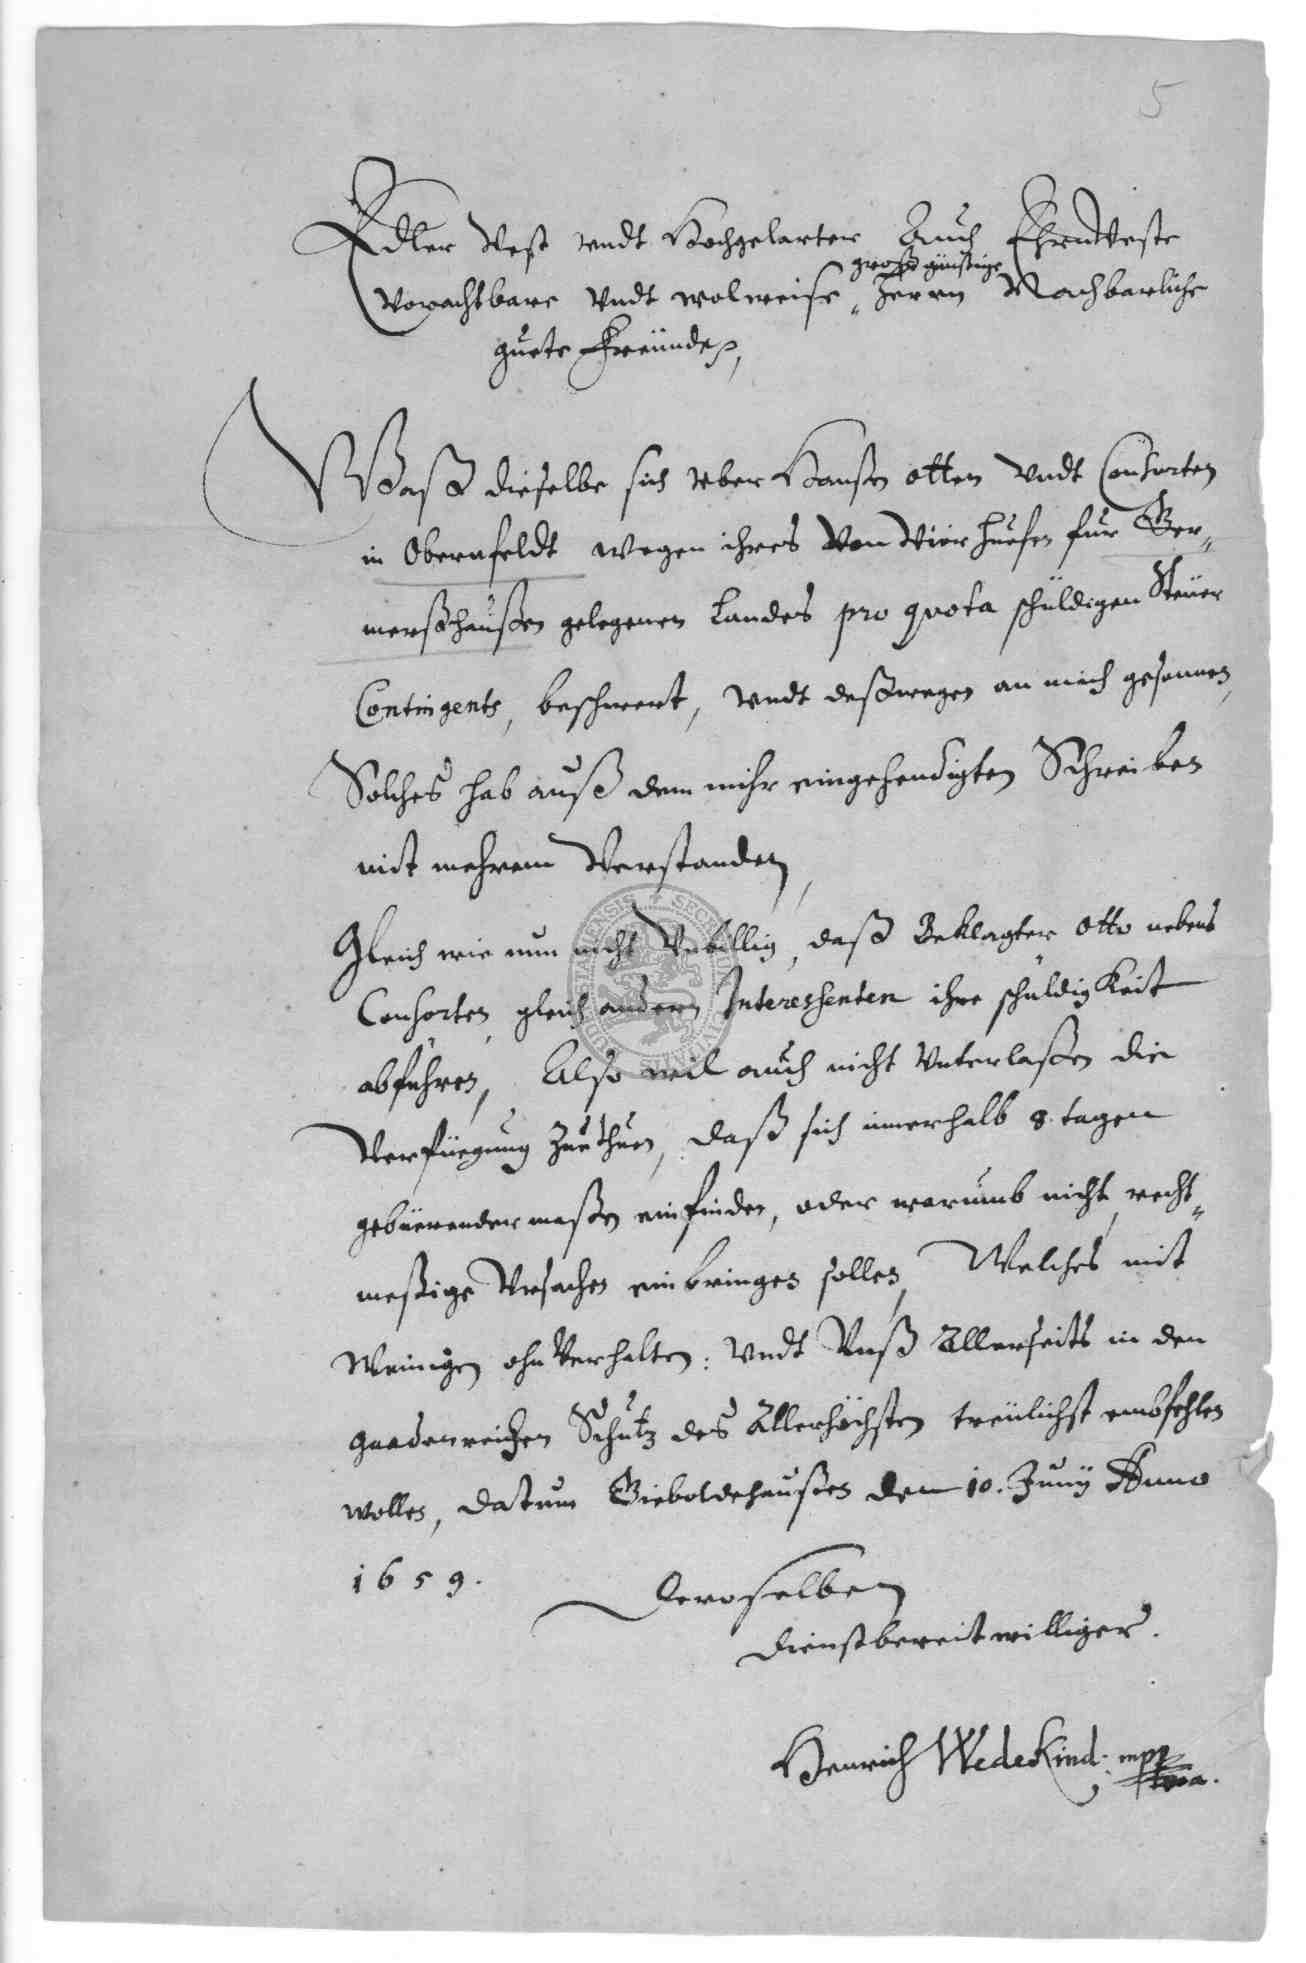 5
Edler Vest vndt Hochgelarter Auch Ehrnveste
großgünstige
Vorachtbare Vndt wolweise, Herrn Nachbarliche
guete Freünde,
Waß dieselbe sich vber Hanßen otten Vndt Consorten
in Obernfeldt wegen ihres Von Vier huefen fur Ger„
merßhaußen gelegenen Landes pro quota schüldigen Steüer
Contingents, beschwert, Vndt deßwegen an mich gesonnen,
Solches hab auß dem mihr eingehendigten Schreiben
mit mehrem Verstanden,
Gleich wie nun nicht Vnbillig, daß Beklagter Otto nebens
Consorten, gleich andern Interessenten ihre schüldigKeit
abführen, Also wil auch nicht Vnterlaßen die
Verfüegung Zuethuen, daß sich innerhalb 8. tagen
gebüerendermaßen einfinden, oder warumb nicht, recht„
meßige Vrsachen einbringen sollen, Welches mit
Wenigen ohn Verhalten: Vndt Vnß Allerseits in den
gnadenreichen Schutz des Allerhöchsten treülichst empfehlen
wollen, Datum Gieboldehaußen den 10. Junij Anno
1659.
Deroselben
dienstbereitwilliger.
Henrich WedeKind. mpp
SECRETUM